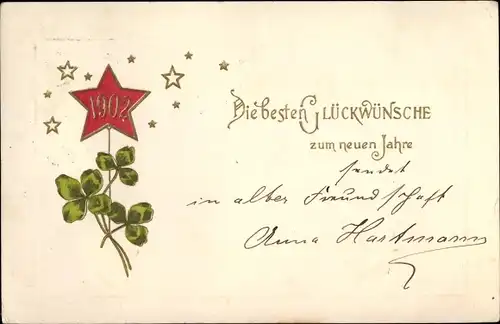 1902
Die besten GLÜCKWÜNSCHE
zum neuen Jahre
sendet
in alter Freundschaft
Anna Hartmann